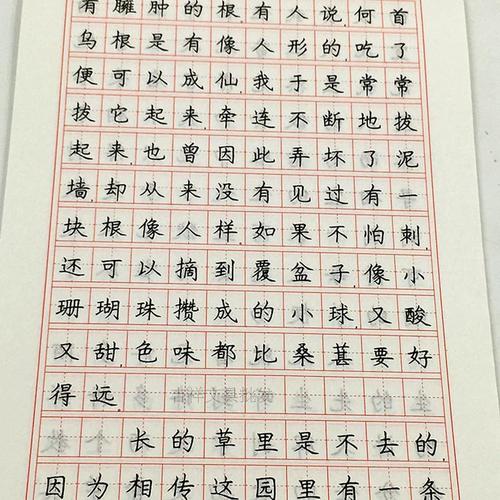 有臃肿的根,有人说,何首
乌根是有像人形的,吃了
便可以成仙,我于是常常
拔它起来,牵连不断地拔
起来,也曾因此弄坏了泥
墙,却从来没有见过有一
块根像人样,如果不怕刺,
还可以摘到覆盆子,像小
珊瑚珠攒成的小球,又酸
又甜,色味都比桑葚要好
得远.
长的草里是不去的,
因为相传这园里有一条